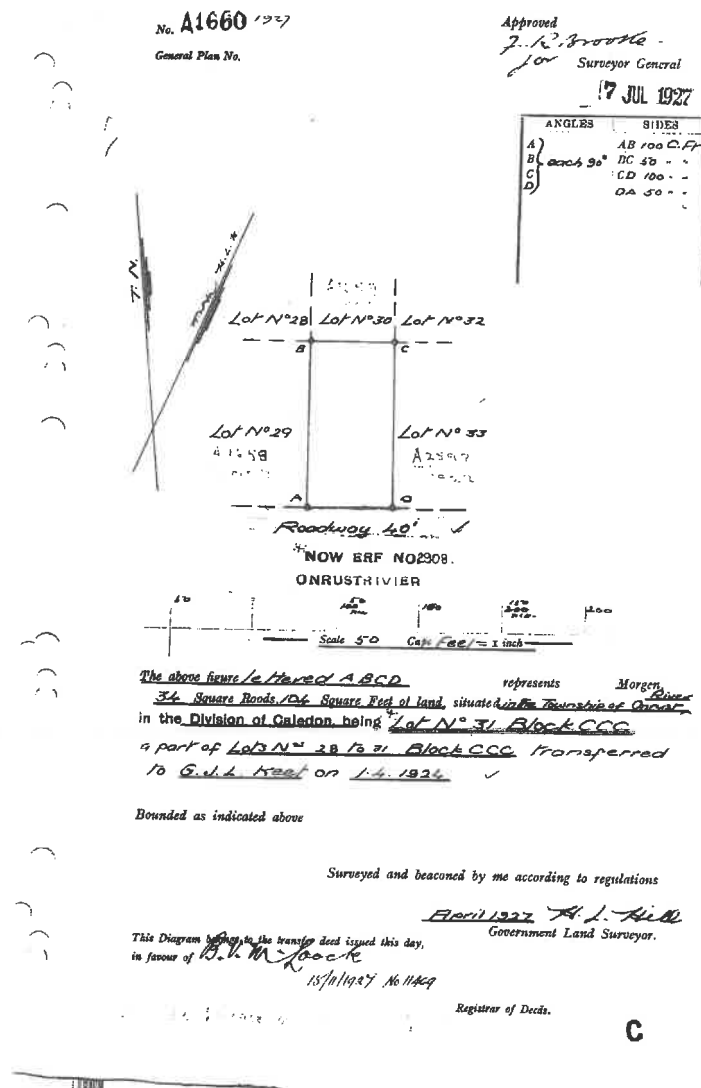 No. A1660 1927
General Plan No.
Approved
for Surveyor General
7 JUL 1927
ANGLES SIDES
A AB 100 C.Ft
B each 90° BC 50 " "
C CD 100 " "
D DA 50 " "
T. N.
Lot No 28 Lot No 30 Lot No 32
B C
Lot No 29 Lot No 33
A1658 A2597
A D
Roadway 40'
*NOW ERF NO2908.
ONRUSTRIVIER
50 50 100 150 200
Scale 50 Cape Feet = 1 inch
The above figure lettered ABCD represents Morgen,
34 Square Roods, 104 Square Feet of land, situated in the Township of Onrust River
in the Division of Caledon, being * Lot No 31 Block CCC
a part of Lots Nos 28 to 31 Block CCC transferred
to G.J.L. Keet on 1.4.1924
Bounded as indicated above
Surveyed and beaconed by me according to regulations
April 1927 H. L. Hill
Government Land Surveyor.
This Diagram belongs to the transfer deed issued this day,
in favour of B. V. M. Loock
15/11/1927 No 11469
Registrar of Deeds.
C